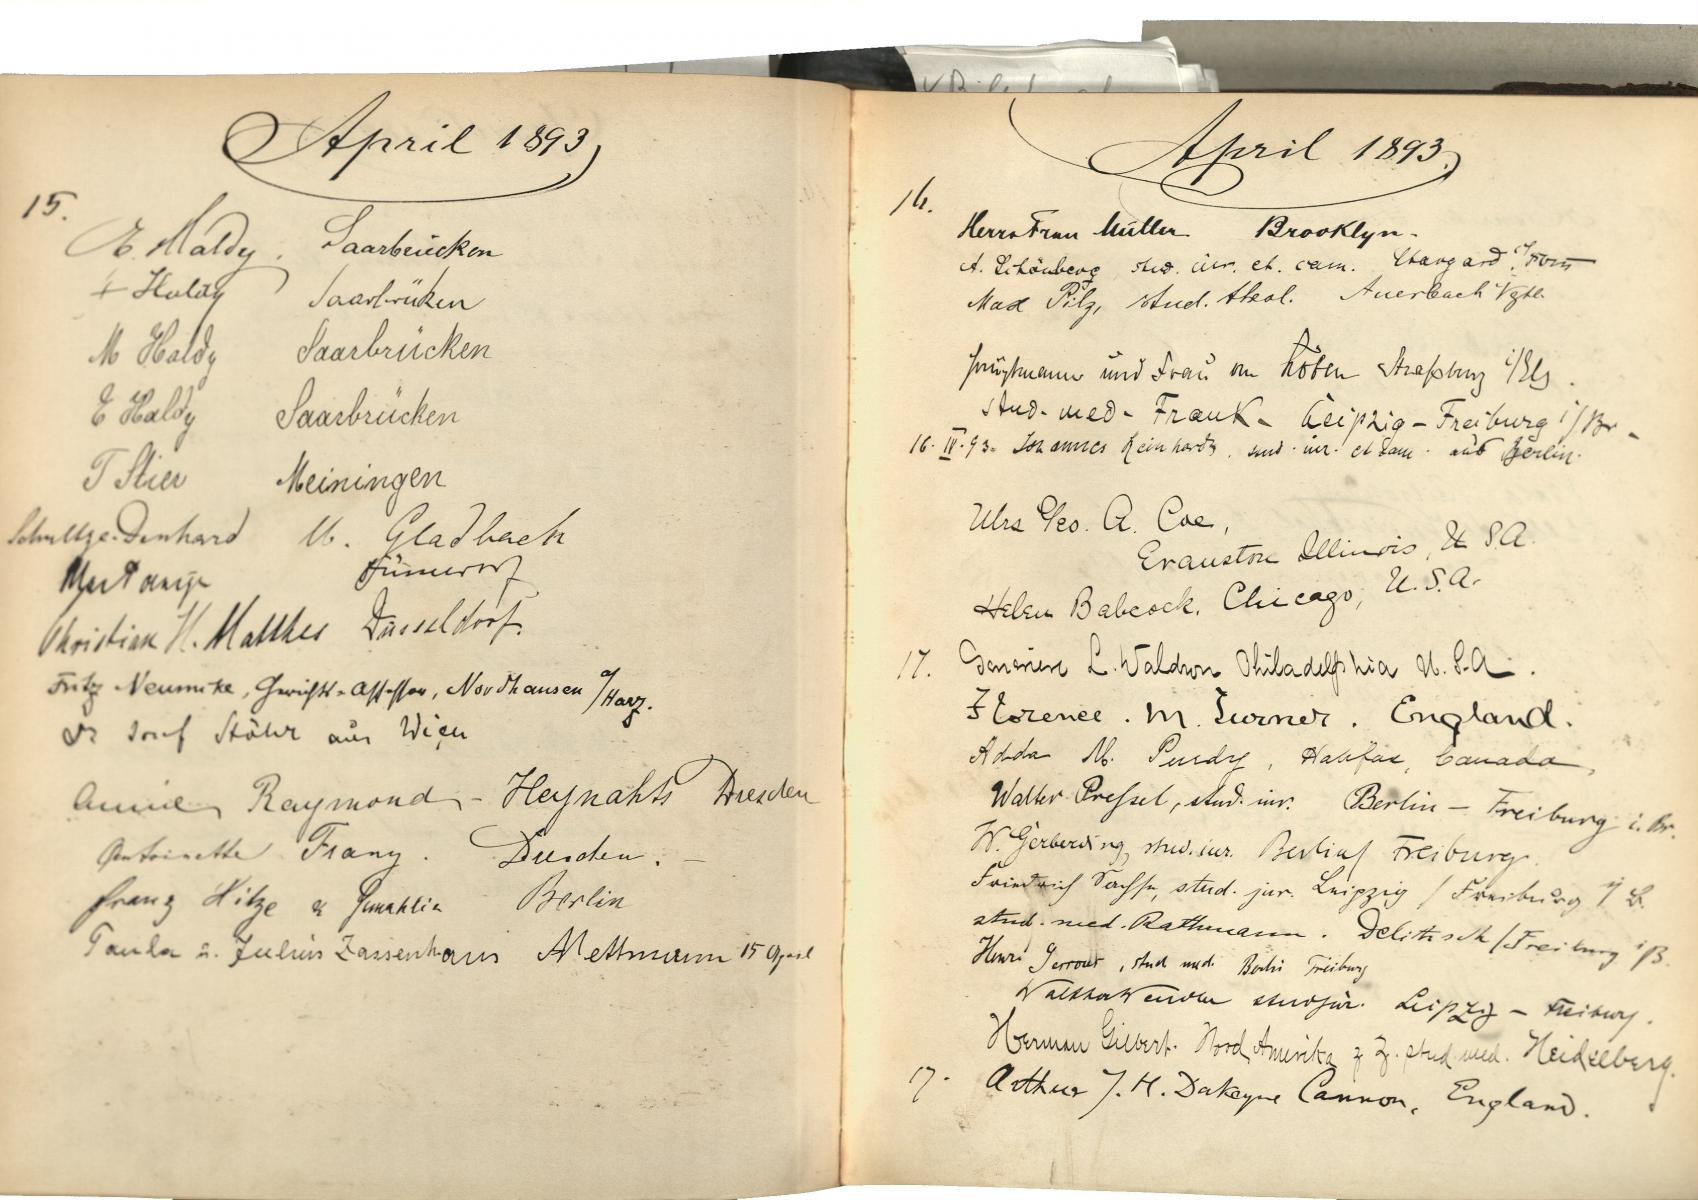 April 1893
15.
E. Haldy. Saarbrücken
Haldy Saarbrüken
M Haldy Saarbrücken
E Haldy Saarbrücken
T Stier Meiningen
Schultze-Denhard M. Gladbach
Christian H. Matthes Düsseldorf.
Fritz Neumike, Gerichts-Assessor, Nordhausen a/Harz.
Dr Josef Stöhr aus Wien
Annie Raymond - Heynahts Dresden
Antoinette Franz. Dresden. -
Franz Hitze & Gemahlin Berlin
Paula u. Julius Zassenhaus Mettmann 15 April
April 1893.
16.
Herr u Frau Müller Brooklyn.
A. Schönberg stud. iur. et. cam. Stargard i/Pom
Max Pilz, stud. theol. Auerbach Vgtl.
und Frau Straßburg i/Els.
stud. med. Frank - Leipzig - Freiburg i/Br.
16. IV. 93. Johannes Reinhardt, stud. iur. et cam. aus Berlin.
Mrs Geo. A. Coe,
Evanston Illinois, U S.A.
Helen Babcock, Chicago, U.S.A.
17. L. Waldron Philadelphia U.S.A.
Florence. M. Turner. England.
Adda M. Purdy, Halifax, Canada,
Walter Pressel, stud. iur. Berlin - Freiburg i. Br.
W. Gerberding, stud. iur. Berlin / Freiburg.
Friedrich Sachse, stud. jur. Leipzig / Freiburg i/ B.
stud. med. Rathmann. Delitzsch / Freiburg i/B.
Henri, stud med. Berlin Freiburg
Walther Wendler stud jur. Leipzig - Freiburg.
Herman Gilbert. Nord Amerika z Z. stud med. Heidelberg.
17. Arthur J. H. Dakeyne Cannon, England.